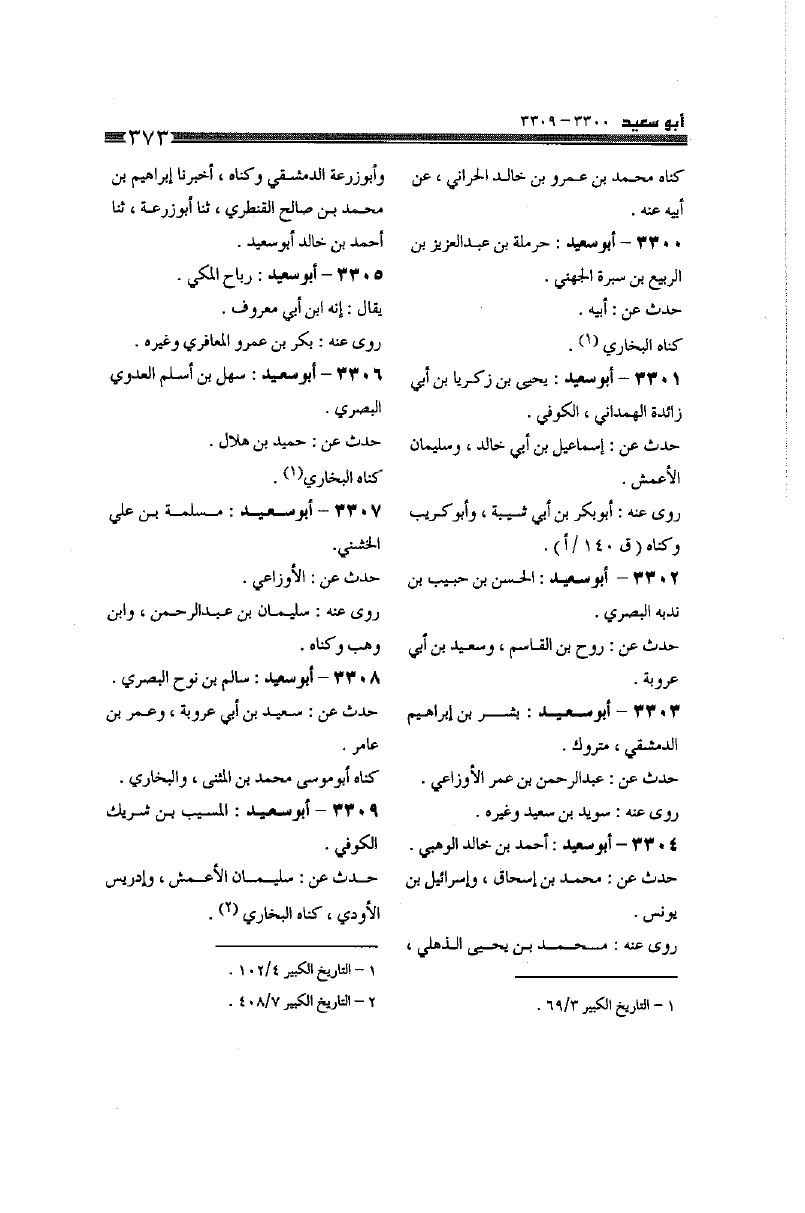 أبو سعيد ٣٣٠٠ – ٣٣٠٩
٣٧٣
كناه محمد بن عمرو بن خالد الحراني ، عن
أبيه عنه .
٣٣٠٠ – أبوسعيد : حرملة بن عبدالعزيز بن
الربيع بن سبرة الجهني .
حدث عن : أبيه .
كناه البخاري (١) .
٣٣٠١ – أبوسعيد : يحيى بن زكريا بن أبي
زائدة الهمداني ، الكوفي .
حدث عن : إسماعيل بن أبي خالد ، وسليمان
الأعمش .
روى عنه : أبوبكر بن أبي شيبة ، وأبوكريب
وكناه ( ق ١٤٠ /أ ) .
٣٣٠٢ – أبوسعيد : الحسن بن حبيب بن
ندبه البصري .
حدث عن : روح بن القاسم ، وسعيد بن أبي
عروبة .
٣٣٠٣ – أبوسعيد : بشر بن إبراهيم
الدمشقي ، متروك .
حدث عن : عبدالرحمن بن عمر الأوزاعي .
روى عنه : سويد بن سعيد وغيره .
٣٣٠٤ – أبوسعيد : أحمد بن خالد الوهبي .
حدث عن : محمد بن إسحاق ، وإسرائيل بن
يونس .
روى عنه : محمد بن يحيى الذهلي ،
١ – التاريخ الكبير ٦٩/٣ .
وأبوزرعة الدمشقي وكناه ، أخبرنا إبراهيم بن
محمد بن صالح القنطري ، ثنا أبوزرعة ، ثنا
أحمد بن خالد أبوسعيد .
٣٣٠٥ – أبوسعيد : رباح المكي .
يقال : إنه ابن أبي معروف .
روى عنه : بكر بن عمرو المعافري وغيره .
٣٣٠٦ – أبوسعيد : سهل بن أسلم العدوي
البصري .
حدث عن : حميد بن هلال .
كناه البخاري(١) .
٣٣٠٧ – أبوسعيد : مسلمة بن علي
الخشني.
حدث عن : الأوزاعي .
روى عنه : سليمان بن عبدالرحمن ، وابن
وهب وكناه .
٣٣٠٨ – أبوسعيد : سالم بن نوح البصري .
حدث عن : سعيد بن أبي عروبة ، وعمر بن
عامر .
كناه أبوموسى محمد بن المثنى ، والبخاري .
٣٣٠٩ – أبوسعيد : المسيب بن شريك
الكوفي .
حدث عن : سليمان الأعمش ، وإدريس
الأودي ، كناه البخاري (٢) .
١ – التاريخ الكبير ١٠٢/٤ .
٢ – التاريخ الكبير ٤٠٨/٧ .